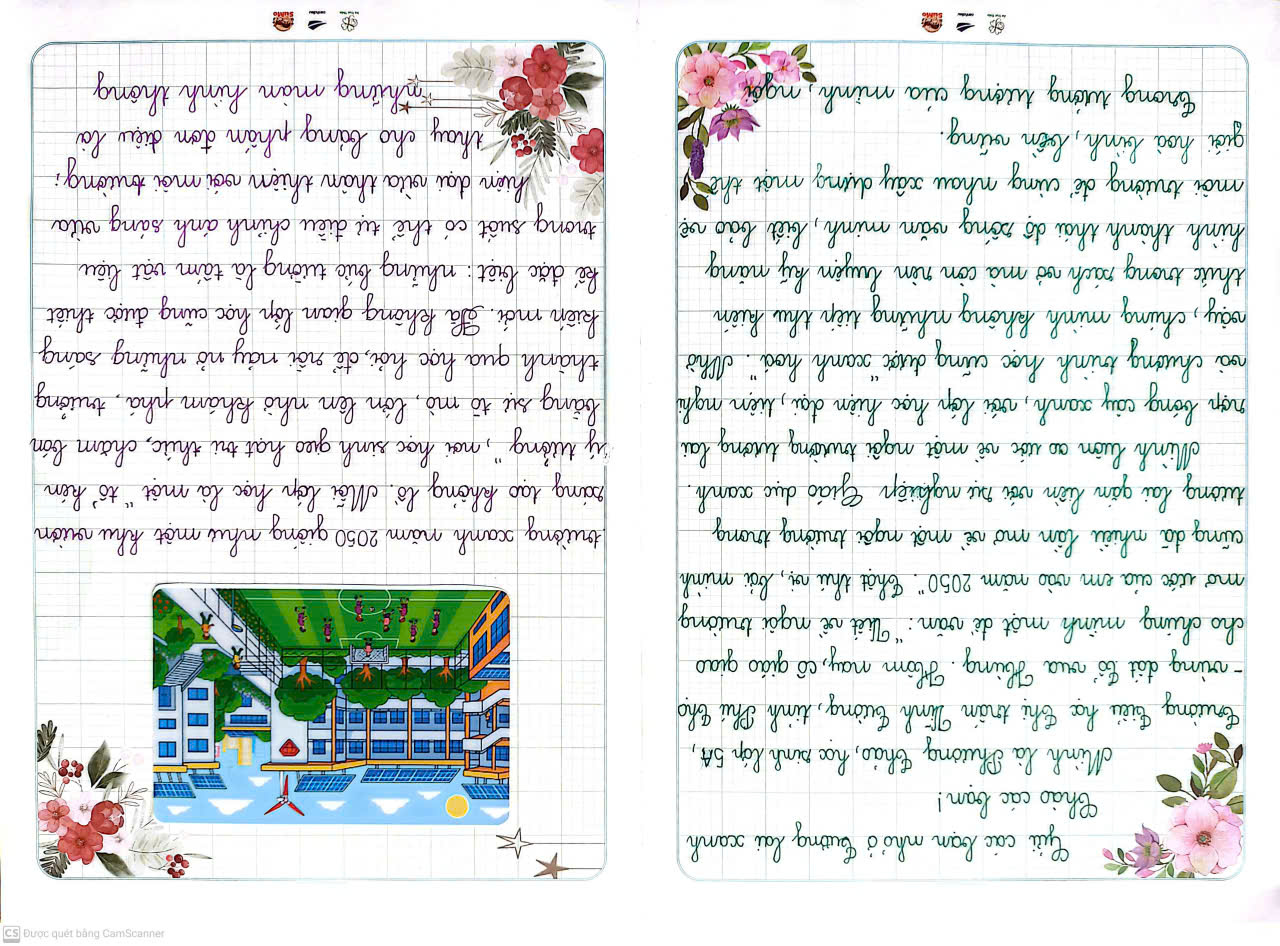 Gửi các bạn nhỏ ở Tương lai xanh
Chào các bạn!
Mình là Phương Thảo, học sinh lớp 5A,
Trường Tiểu học Thị trấn Vĩnh Tường, tỉnh Phú Thọ
- vùng đất Tổ vua Hùng. Hôm nay, cô giáo giao
cho chúng mình một đề văn: "Viết về ngôi trường
mơ ước của em vào năm 2050". Thật thú vị, bởi mình
cũng đã nhiều lần mơ về một ngôi trường trong
tương lai gắn liền với sự nghiệp Giáo dục xanh.
Mình luôn ao ước về một ngôi trường tương lai
rợp bóng cây xanh, với lớp học hiện đại, tiện nghi
và chương trình học cũng được "xanh hoá". Nhờ
vậy, chúng mình không những tiếp thu kiến
thức trong sách vở mà còn rèn luyện kỹ năng
hình thành thái độ sống văn minh, biết bảo vệ
môi trường để cùng nhau xây dựng một thế
giới hoà bình, bền vững.
Trong tưởng tượng của mình, ngôi
trường xanh năm 2050 giống như một khu vườn
sáng tạo khổng lồ. Mỗi lớp học là một "tổ kén
ý tưởng", nơi học sinh gieo hạt tri thức, chăm bón
bằng sự tò mò, lớn lên nhờ khám phá, trưởng
thành qua học hỏi, để rồi nảy nở những sáng
kiến mới. Và không gian lớp học cũng được thiết
kế đặc biệt: những bức tường là tấm vật liệu
trong suốt có thể tự điều chỉnh ánh sáng vừa
hiện đại vừa thân thiện với môi trường;
thay cho bảng phấn đơn điệu là
những màn hình thông
SuMo
CS Được quét bằng CamScanner